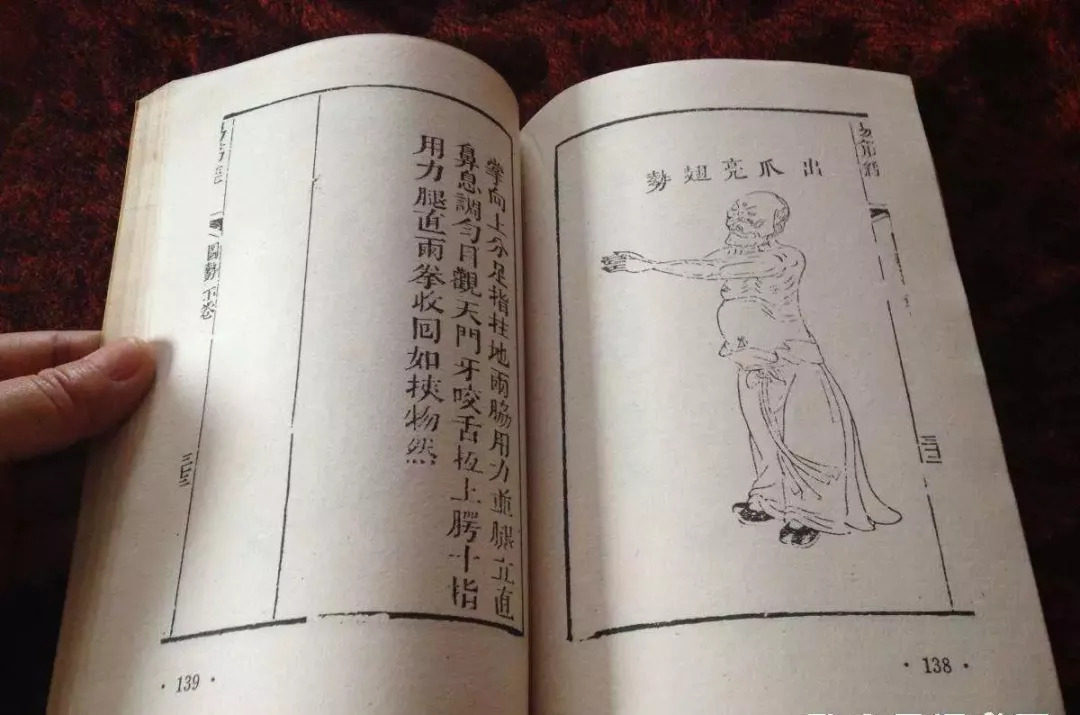 出爪亮翅勢
易筋經
· 138 ·
掌向上分足指拄地兩脇用力並腿立直
鼻息調勻目觀天門牙咬舌抵上腭十指
用力腿直兩拳收回如挾物然
圖勢下卷
· 139 ·